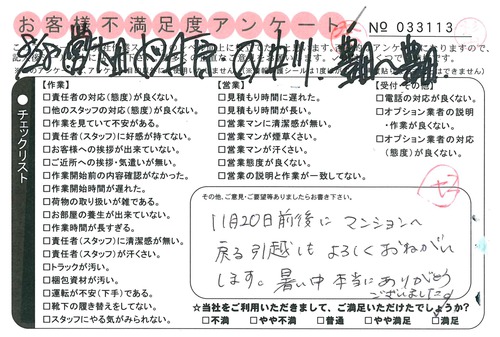 お客様不満足度アンケート
No 033113
チェックリスト
【作業】
□責任者の対応(態度)が良くない。
□他のスタッフの対応(態度)が良くない。
□作業を見ていて不安がある。
□責任者(スタッフ)に好感が持てない。
□お客様への挨拶が出来ていない。
□ご近所への挨拶・気遣いが無い。
□作業開始前の内容確認がなかった。
□作業開始時間が遅れた。
□荷物の取り扱いが雑である。
□お部屋の養生が出来ていない。
□作業時間が長すぎる。
□責任者(スタッフ)に清潔感が無い。
□責任者(スタッフ)が汗くさい。
□トラックが汚い。
□梱包資材が汚い。
□運転が不安(下手)である。
□靴下の履き替えをしてない。
□スタッフにやる気がみられない。
【営業】
□見積もり時間に遅れた。
□見積もり時間が長い。
□営業マンに清潔感が無い。
□営業マンが煙草くさい。
□営業マンが汗くさい。
□営業態度が良くない。
□営業の説明と作業が一致してない。
【受付・その他】
□電話の対応が良くない。
□オプション業者の説明
・作業が良くない。
□オプション業者の対応
(態度)が良くない。
その他、ご意見・ご要望等ありましたらお書き下さい。
11月20日前後に マンションへ
戻る引越しも よろしくおねがい
します。暑い中本当にありがとう
ございました。
☆当社をご利用いただきまして、ご満足いただけたでしょうか?
□不満 □やや不満 □普通 □やや満足 □満足